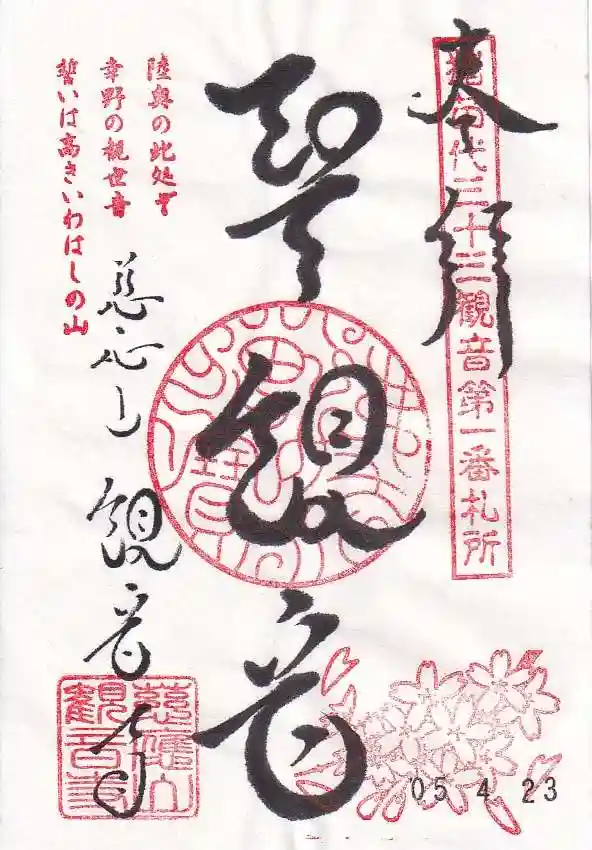 奉拝
猪苗代三十三観音第一番札所
聖観音
陸奥の此処ぞ
幸野の観世音
誓いは高きいわはしの山
慈応山 観音寺
慈應山
観音寺
05.4.23